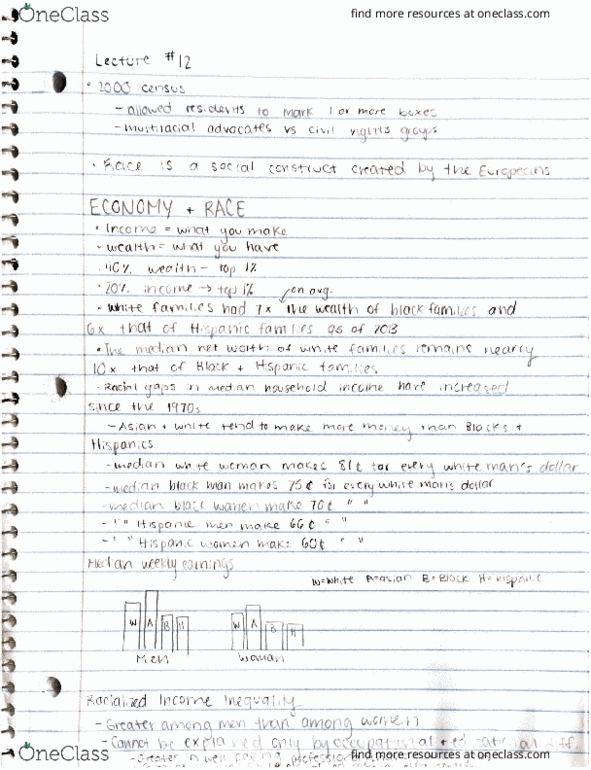 OneClass
find more resources at oneclass.com
Lecture #12
• 2000 census
- allowed residents to mark 1 or more boxes
- multiracial advocates vs civil rights groups
• Race is a social construct created by the Europeans
ECONOMY + RACE
• Income = what you make
• wealth = what you have
• 40% wealth - top 1%
• 20% income → top 1%
on avg.
• white families had 7x the wealth of black families and
6x that of Hispanic families as of 2013
• The median net worth of white families remains nearly
10x that of Black + Hispanic families
• Racial gaps in median household income have increased
since the 1970s
- Asian + white tend to make more money than Blacks +
Hispanics
- median white woman makes 81¢ for every white man's dollar
- median black man makes 75¢ for every white man's dollar
- median black women make 70¢ " "
- " " Hispanic men make 66¢ " "
- " " Hispanic women make 60¢ " "
Median weekly earnings
W=White A=asian B=Black H=Hispanic
W A B H
W A B H
Men
Woman
Racialized Income Inequality
- Greater among men than among women
- Cannot be explained only by occupational + ed
- Greater in well paying
OneClass
find more resources at oneclass.com